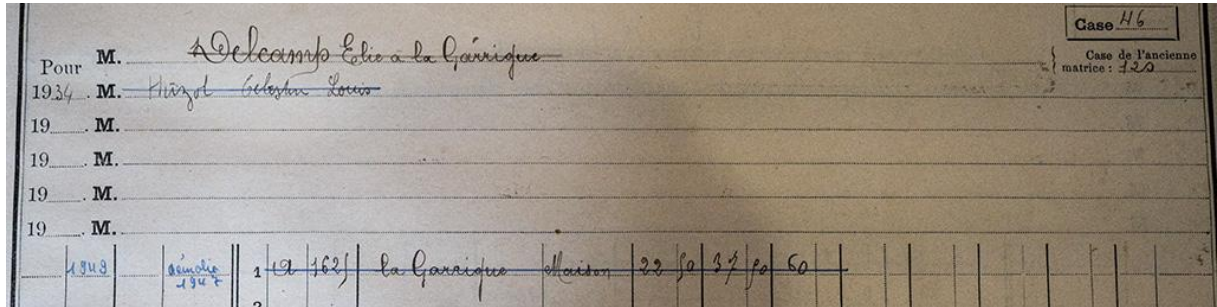 Case 46
Pour M. Delcamp Elie à la Garrigue
Case de l'ancienne
matrice :
1934. M. Célestin Louis
19 . M.
19 . M.
19 . M.
19 . M.
1949 démolie 1947 1 A 162 la Garrigue Maison 22 50 37 50 60
2